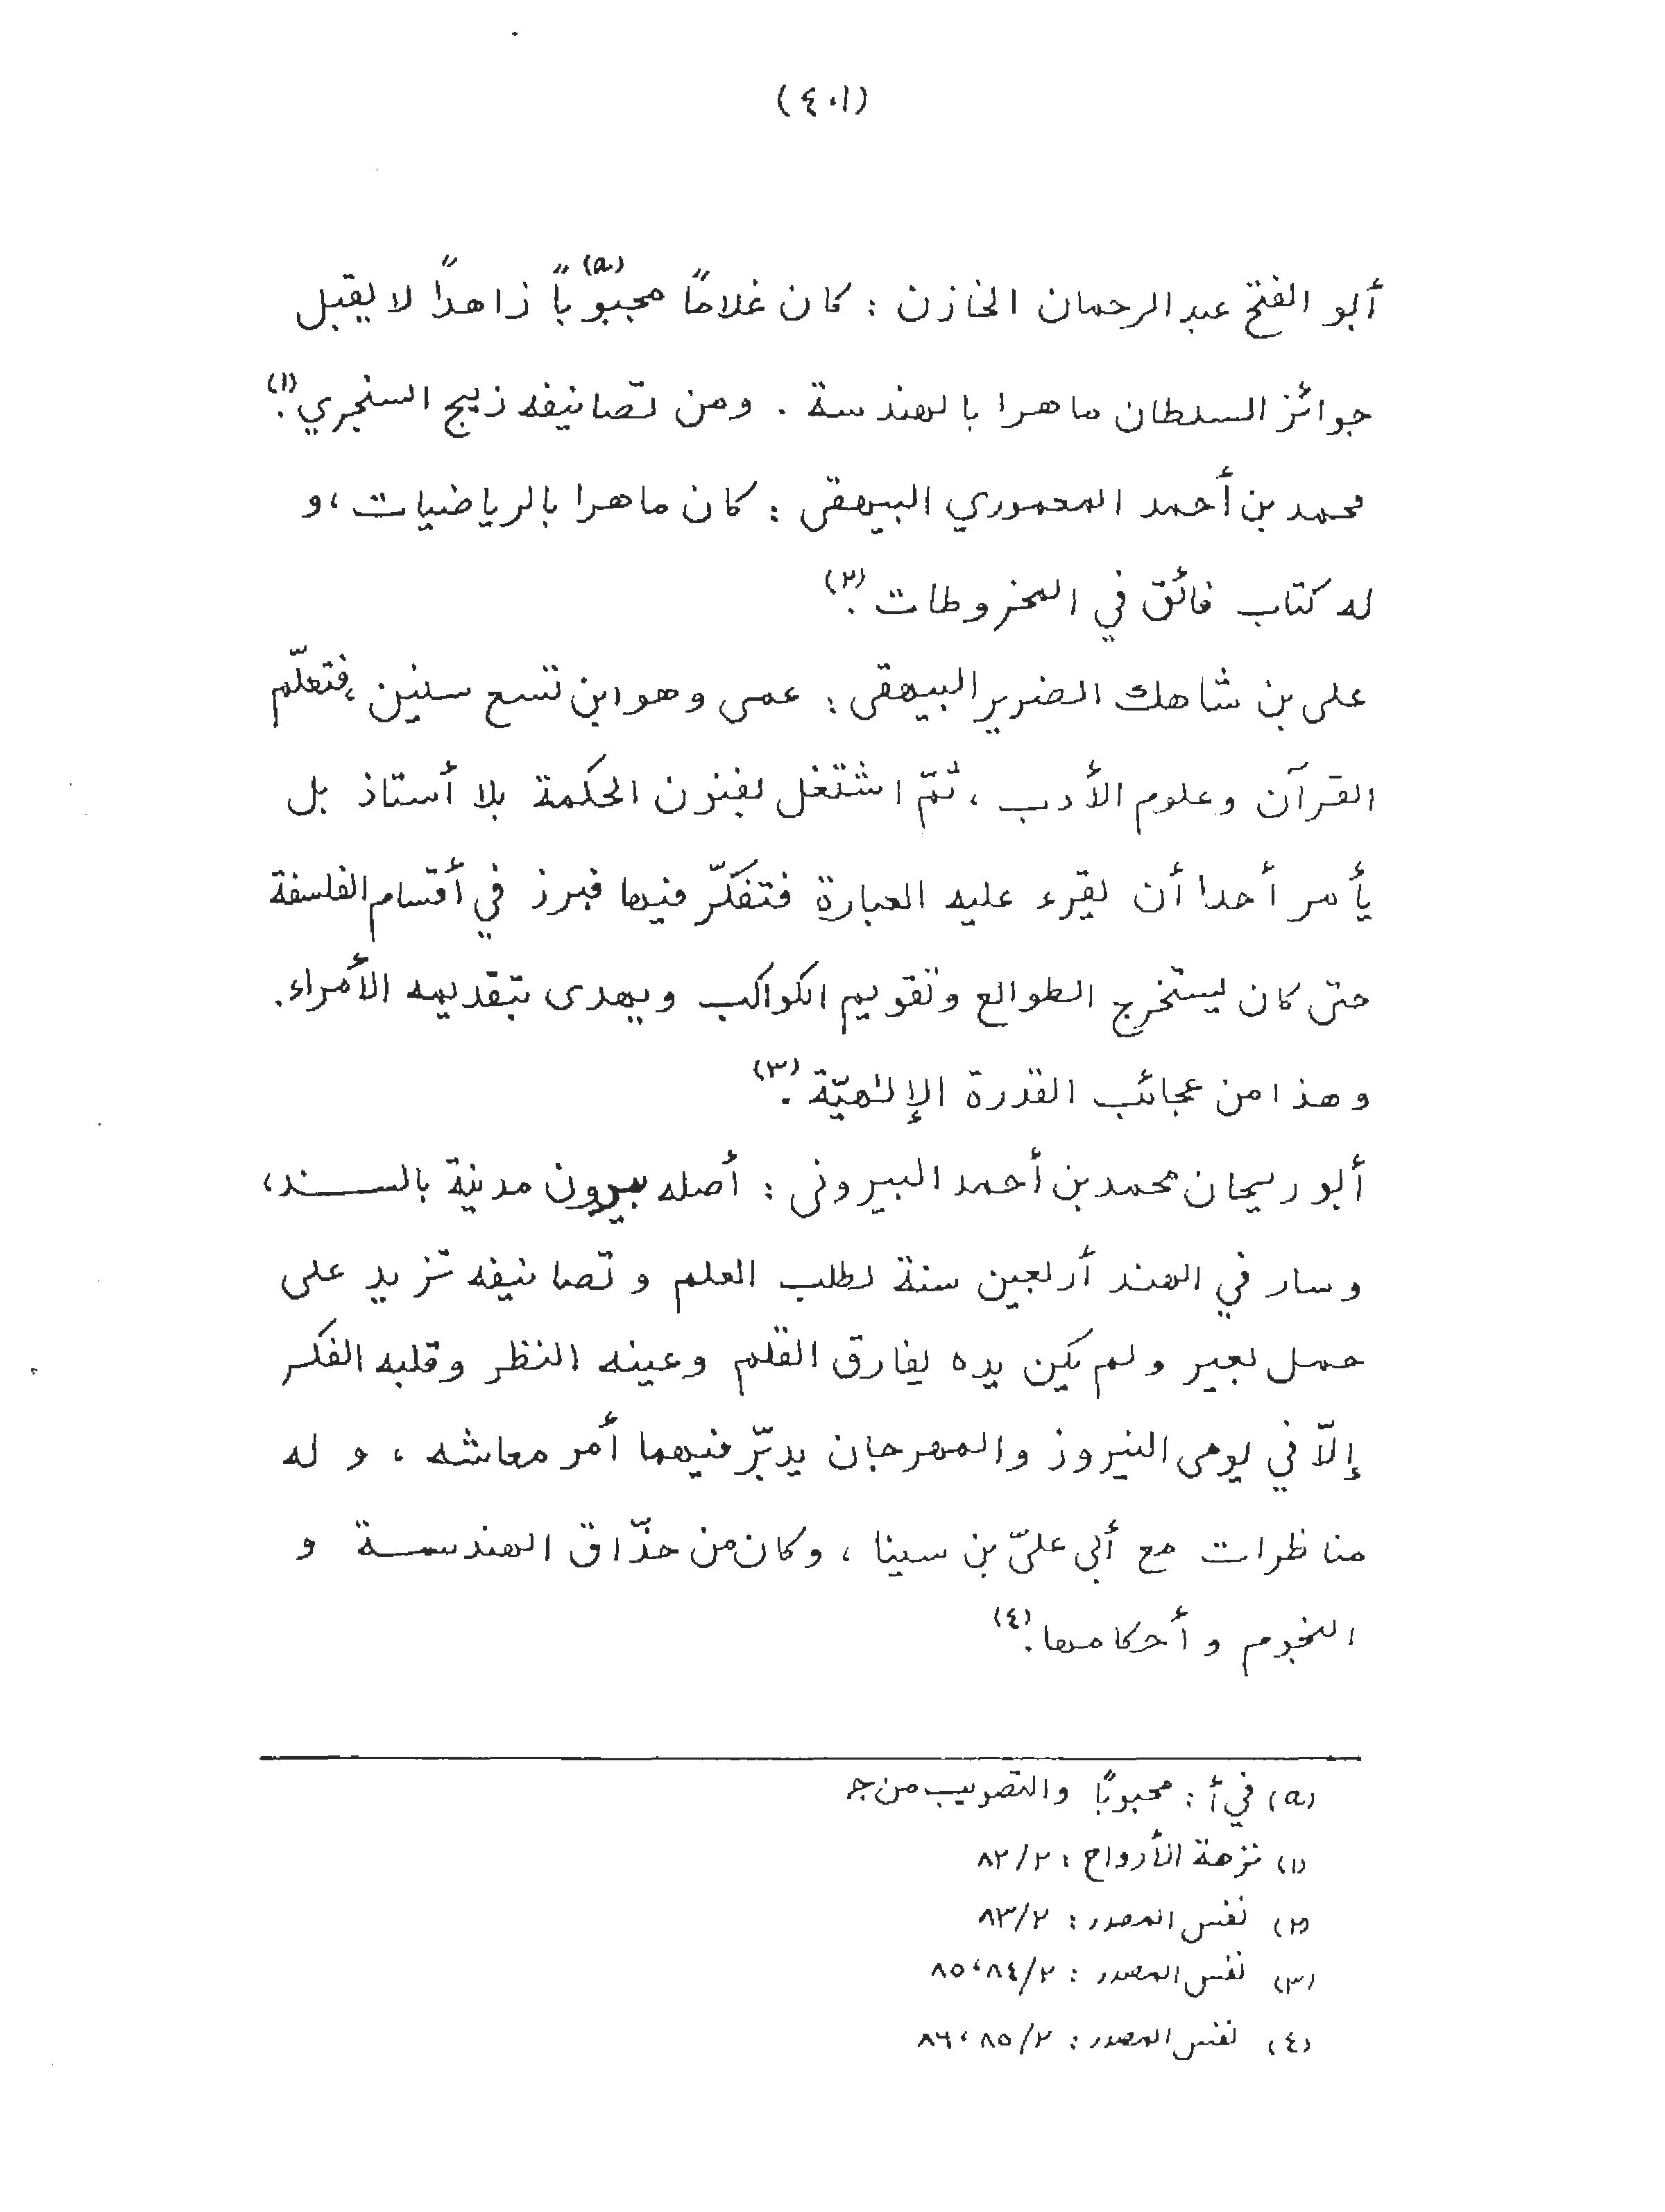 (٤٠١)
أبو الفتح عبد الرحمان الخازن : كان غلامًا مجبوبًا (a) زاهدًا لا يقبل
جوائز السلطان ماهرا بالهندسة . ومن تصانيفه زيج السنجري . (١)
محمد بن أحمد المعموري البيهقى : كان ماهرا بالرياضيات ، و
له كتاب فائق في المخروطات . (٢)
على بن شاهك الضرير البيهقى : عمى وهو ابن تسع سنين ، فتعلّم
القرآن وعلوم الأدب ، ثمّ اشتغل بفنون الحكمة بلا أستاذ بل
يأمر أحدا أن يقرء عليه العبارة فتفكّر فيها فبرز في أقسام الفلسفة
حتى كان يستخرج الطوالع وتقويم الكواكب ويهدى بتقديمه الأمراء .
وهذا من عجائب القدرة الإلهيّة . (٣)
أبو ريحان محمد بن أحمد البيرونى : أصله بيرون مدينة بالسند ،
وسار في الهند أربعين سنة لطلب العلم وتصانيفه تزيد على
حمل بعير ولم يكن يده يفارق القلم وعينه النظر وقلبه الفكر
إلّا في يومى النيروز والمهرجان يدبّر فيهما أمر معاشه ، و له
مناظرات مع أبى علىّ بن سينا ، وكان من حذّاق الهندسة و
النجوم و أحكامها . (٤)
(a) في أ : محبوبًا والتصويب من ج
(١) نزهة الأرواح : ٨٢/٢
(٢) نفس المصدر : ٨٣/٢
(٣) نفس المصدر : ٨٥،٨٤/٢
(٤) نفس المصدر : ٨٦،٨٥/٢